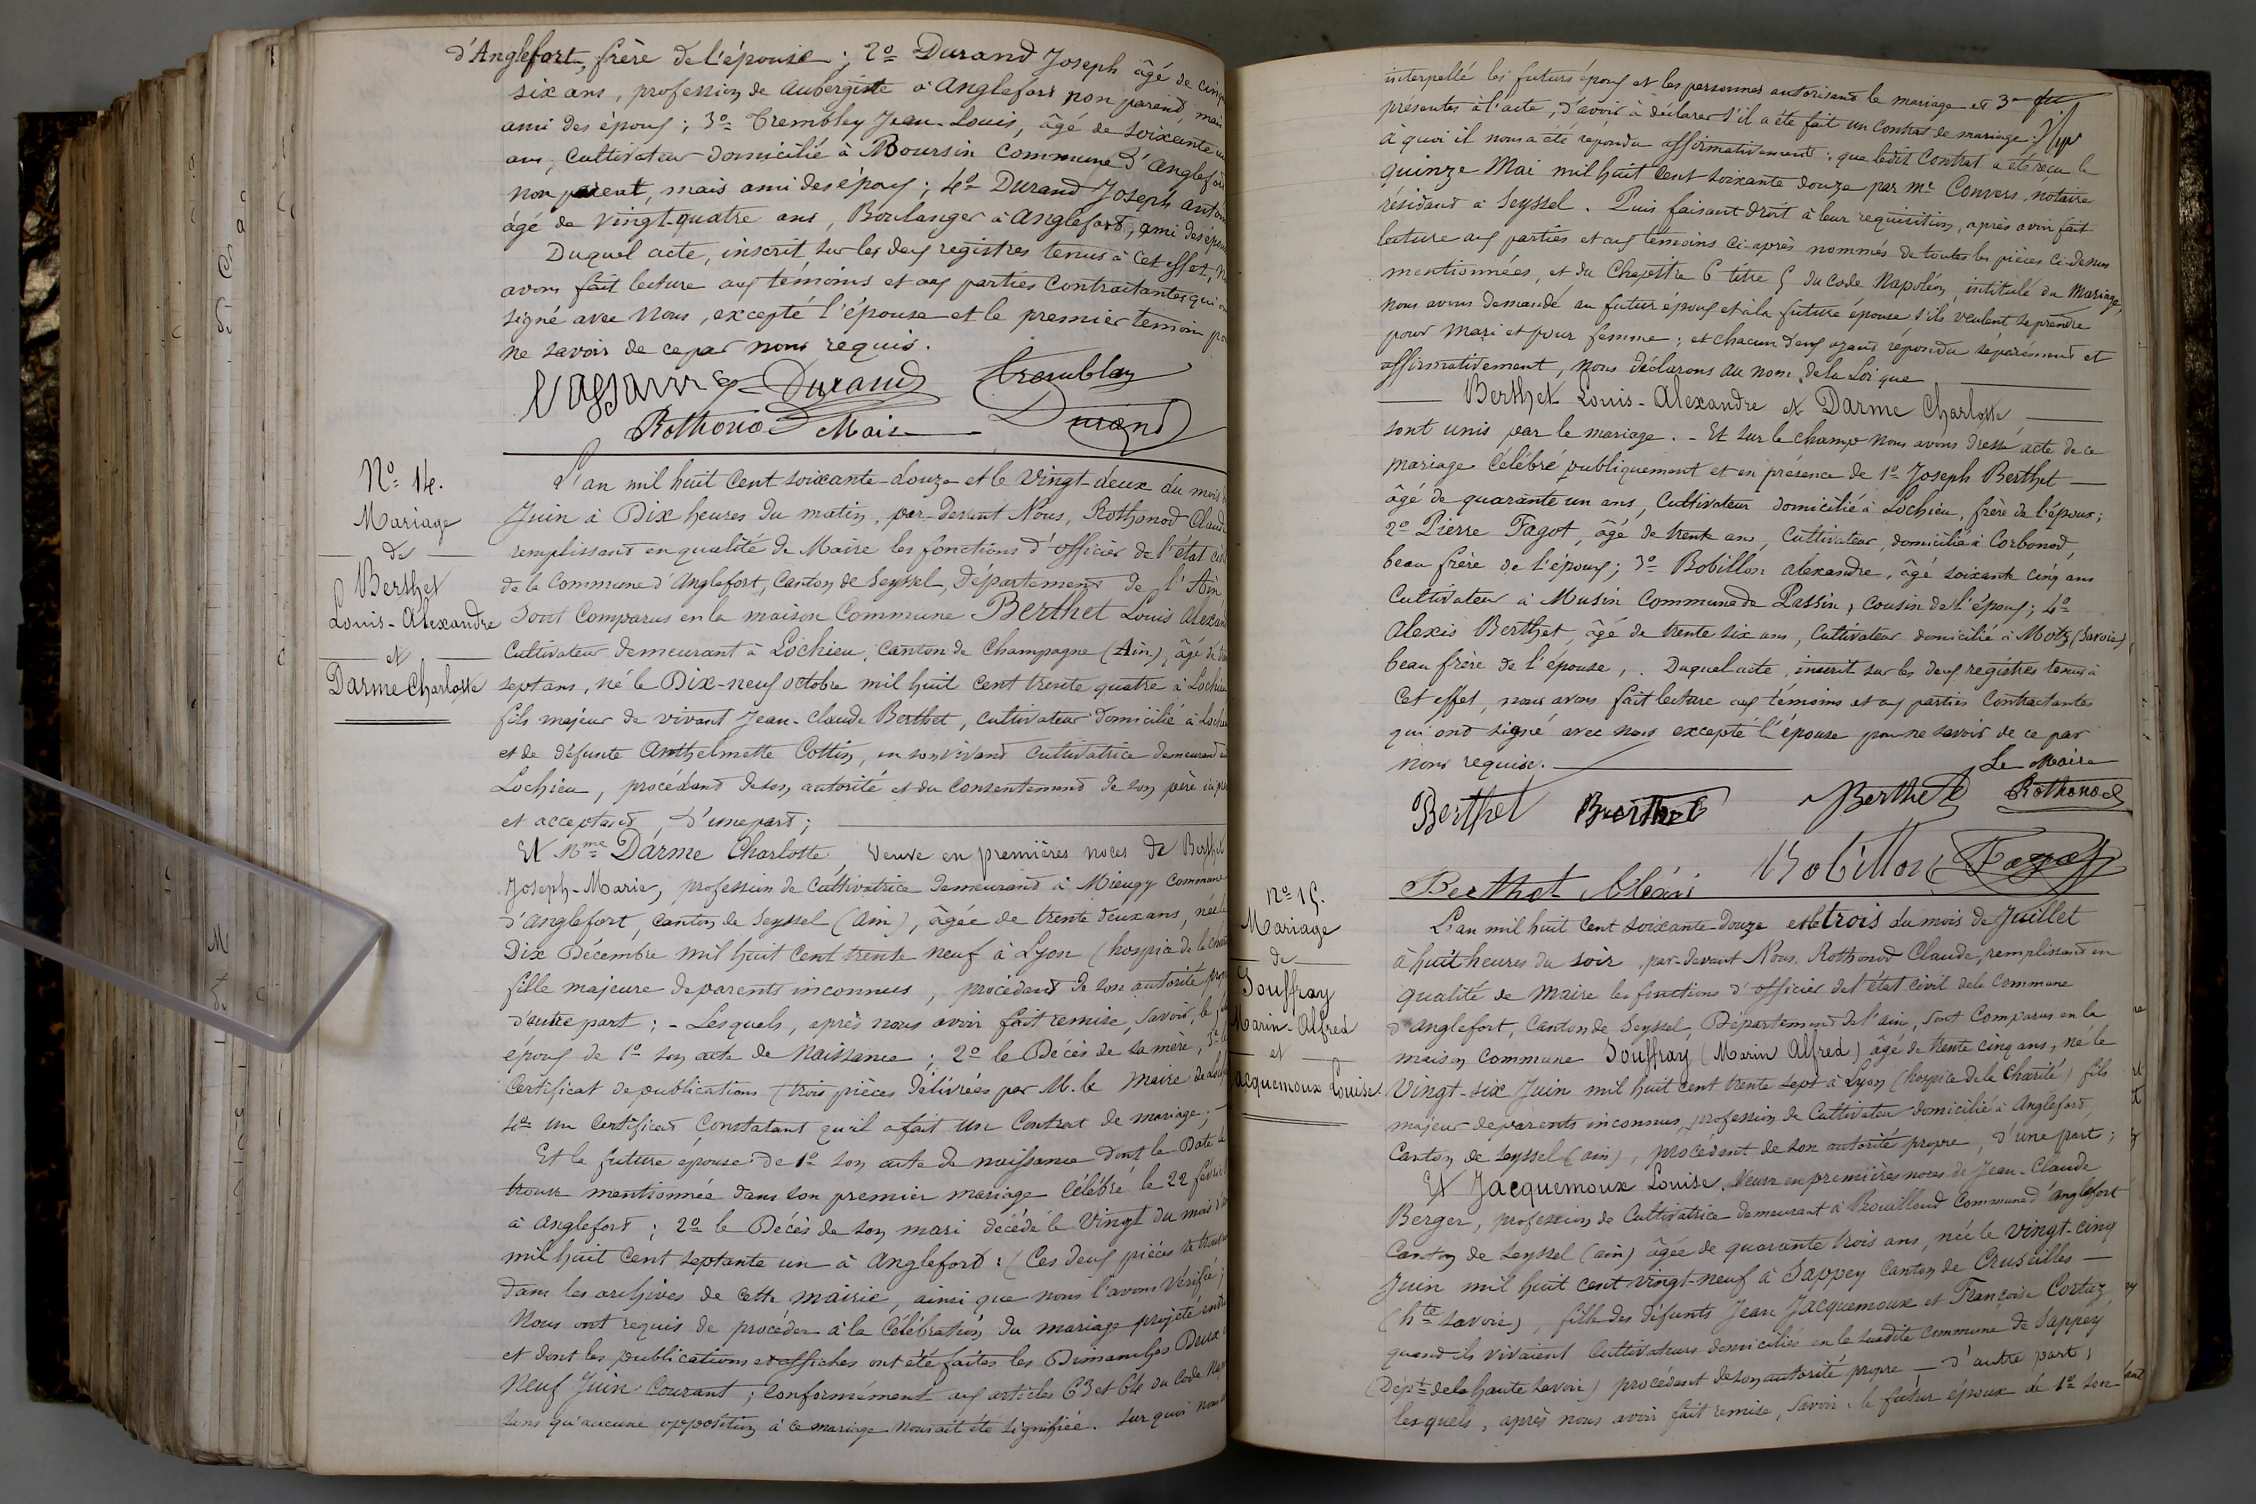 d'Anglefort, frère de l'épouse ; 2º Durand Joseph âgé de
six ans, profession de aubergiste à Anglefort non parent, mais
ami des époux ; 3º Trembley Jean-Louis, âgé de soixante
ans, cultivateur domicilié à Boursin commune d'Anglefort
non parent, mais ami des époux ; 4º Durand Joseph
âgé de vingt-quatre ans, Boulanger à Anglefort, ami des
Duquel acte, inscrit sur les deux registres tenus à cet effet,
avons fait lecture aux témoins et aux parties contractantes qui
signé avec Nous, excepté l'épouse et le premier témoin
ne savoir de ce par nous requis.
Durand Tremblay
Rothonod Maire Durand
Nº 14.
Mariage
de
Berthet
Louis-Alexandre
et
Darme Charlotte
L'an mil huit cent soixante-douze et le vingt-deux du mois
Juin à Dix heures du matin, par-devant Nous, Rothonod
remplissant en qualité de Maire les fonctions d'officier de l'état
de la Commune d'Anglefort, Canton de Seyssel, Département de l'Ain
sont comparus en la maison Commune Berthet Louis
Cultivateur demeurant à Lochieu, canton de Champagne (Ain), âgé de
sept ans, né le Dix-neuf octobre mil huit cent trente quatre à
fils majeur de vivant Jean-Claude Berthet, cultivateur domicilié à
et de défunte Anthelmette Cottin, en son vivant cultivatrice demeurant
Lochieu, procédant de son autorité et du consentement de son père
et acceptant, d'une part ;
Et Mme Darme Charlotte, veuve en premières noces de
Joseph-Marie, profession de cultivatrice demeurant à Mieugy
d'Anglefort, canton de Seyssel (Ain), âgée de trente deux ans,
Dix Décembre mil huit cent trente neuf à Lyon (hospice de la
fille majeure de parents inconnus, procédant de son autorité
d'autre part ; - Lesquels, après nous avoir fait remise, savoir, le
époux de 1º son acte de Naissance ; 2º le Décès de sa mère,
Certificat de publications (trois pièces délivrées par M. le Maire de
4º un certificat constatant qu'il a fait un Contrat de mariage ;
Et la future épouse de 1º son acte de naissance dont la Date
trouve mentionnée dans son premier mariage célébré le 22
à Anglefort ; 2º le Décès de son mari décédé le Vingt du mois
mil huit cent septante un à Anglefort : (Ces deux pièces se
dans les archives de cette mairie, ainsi que nous l'avons Vérifié ;
Nous ont requis de procéder à la célébration du mariage projeté
et dont les publications et affiches ont été faites les Dimanches Deux
Neuf Juin Courant ; conformément aux articles 63 et 64 du code
sans qu'aucune opposition à ce mariage Nous ait été signifiée. Sur quoi
interpellé les futurs époux et les personnes autorisant le mariage et
présentes à l'acte, d'avoir à déclarer s'il a été fait un contrat de mariage ;
à quoi il nous a été répondu affirmativement : que ledit contrat a été reçu le
quinze Mai mil huit cent soixante douze par Me Convers, notaire
résidant à Seyssel. Puis faisant droit à leur requisition, après avoir fait
lecture aux parties et aux témoins ci-après nommés de toutes les pièces ci-dessus
mentionnées, et du Chapitre 6 titre 5 du Code Napoléon, intitulé du Mariage,
nous avons demandé au futur époux et à la future épouse s'ils veulent se prendre
pour mari et pour femme ; et chacun d'eux ayant répondu séparément et
affirmativement, Nous déclarons au nom de la Loi que
Berthet Louis-Alexandre et Darme Charlotte
sont unis par le mariage. - Et sur le champ nous avons dressé acte de ce
mariage célébré publiquement et en présence de 1º Joseph Berthet
âgé de quarante un ans, cultivateur domicilié à Lochieu, frère de l'époux ;
2º Pierre Fagot, âgé de trente ans, Cultivateur, domicilié à Corbonod,
beau frère de l'époux ; 3º Bobillon Alexandre, âgé soixante cinq ans
Cultivateur à Musin Commune de Passin, cousin de l'époux ; 4º
Alexis Berthet, âgé de trente six ans, Cultivateur domicilié à Motz (Savoie),
beau frère de l'épouse, . Duquel acte, inscrit sur les deux registres tenus à
cet effet, nous avons fait lecture aux témoins et aux parties Contractantes
qui ont signé avec nous excepté l'épouse pour ne savoir de ce par
nous requise.
Le Maire
Berthet Berthet Berthet Rothonod
Bobillon Fagot
Berthet Alexis
Nº 15.
Mariage
de
Jouffray
Marin-Alfred
et
Jacquemoux Louise
L'an mil huit cent soixante-douze et le trois du mois de Juillet
à huit heures du soir, par-devant Nous, Rothonod Claude, remplissant en
qualité de Maire les fonctions d'officier de l'état civil de la Commune
d'Anglefort, Canton de Seyssel, Département de l'Ain, sont comparus en la
maison Commune Jouffray (Marin Alfred) âgé de trente cinq ans, né le
Vingt-six Juin mil huit cent trente sept à Lyon (hospice de la Charité) fils
majeur de parents inconnus, profession de Cultivateur domicilié à Anglefort,
Canton de Seyssel (ain), procédant de son autorité propre, d'une part ;
Et Jacquemoux Louise, Veuve en premières noces de Jean-Claude
Berger, profession de Cultivatrice demeurant à Brouilloud Commune d'Anglefort
Canton de Seyssel (ain) âgée de quarante trois ans, née le vingt-cinq
Juin mil huit cent vingt-neuf à Sappey Canton de Cruseilles
(hte Savoie), fille des défunts Jean Jacquemoux et Françoise Cortaz,
quand ils vivaient Cultivateurs domiciliés en la susdite Commune de Sappey
(Dépt de la haute Savoie) procédant de son autorité propre d'autre part ;
lesquels, après nous avoir fait remise, Savoir : le futur époux de 1º son